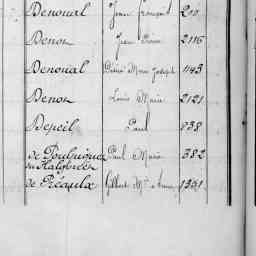 Denoual Jean François 200
Denos Jean Pierre 2116
Denoual Marie Joseph 1143
Denos Louis Marie 2121
Depeil Paul 838
de Poulpiquet Paul Marie 382
du Halgouet
de Préaulx Gilbert Mie Anne 1351